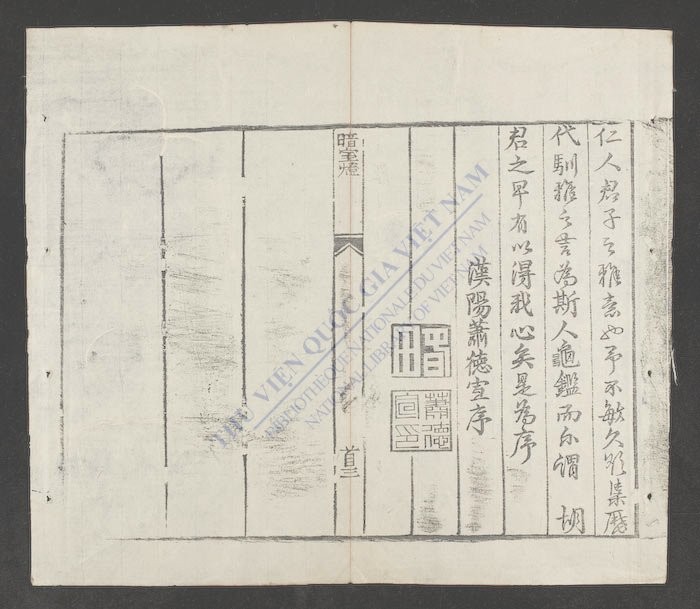 仁人君子之雅意也予不敏久欲集歷
代馴雅之言為斯人龜鑑而不謂 胡
君之早有以得我心矣是為序
漢陽蕭德宣序
蕭德宣印
暗室燈
首三
THƯ VIỆN QUỐC GIA VIỆT NAM
BIBLIOTHÈQUE NATIONALE DU VIETNAM
NATIONAL LIBRARY OF VIETNAM